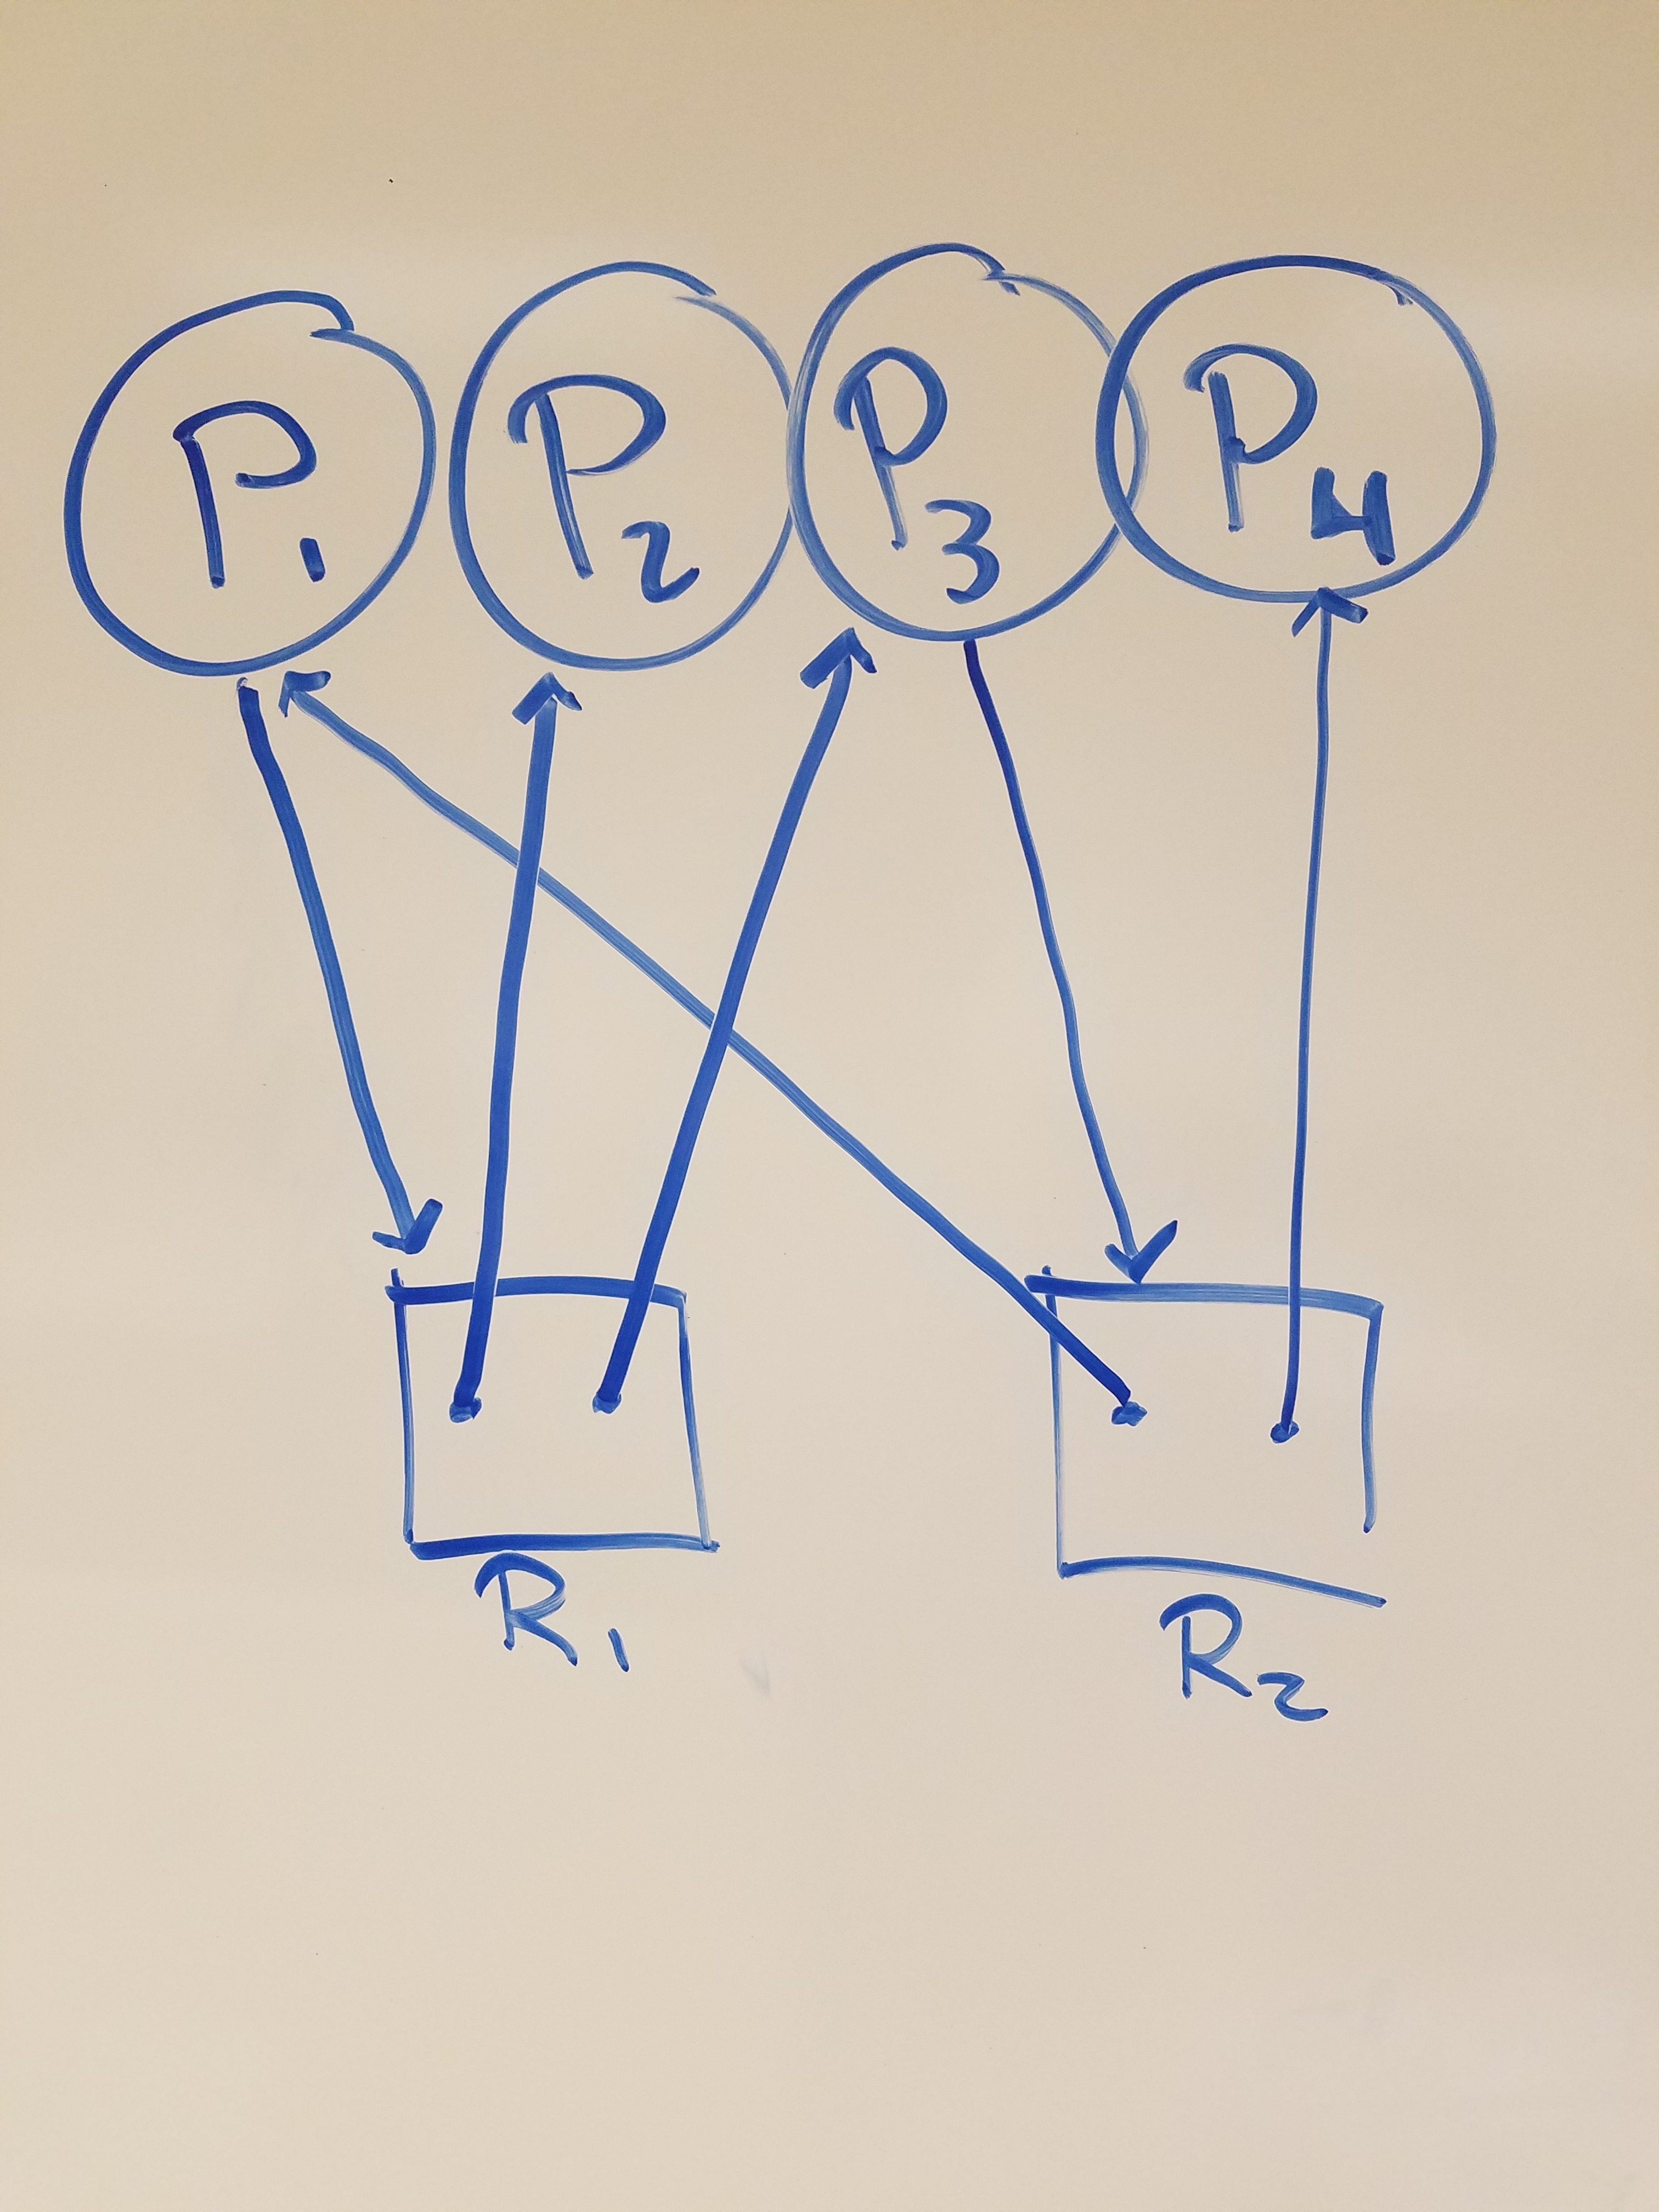 P1 P2 P3 P4
R1 R2